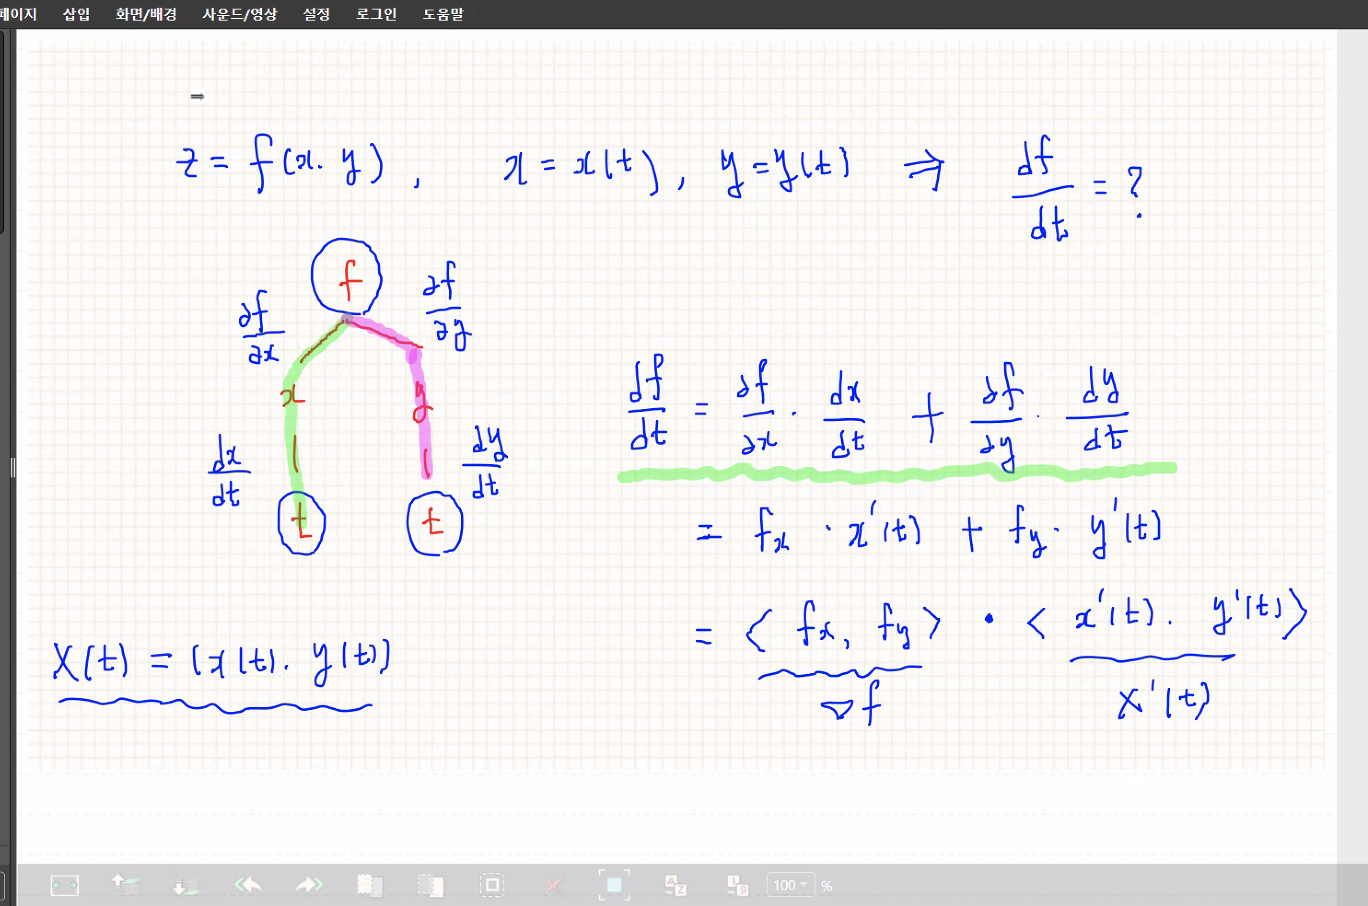 페이지 삽입 화면/배경 사운드/영상 설정 로그인 도움말
z = f(x. y), x = x(t), y = y(t) ⇒ df/dt = ?
f
∂f/∂x ∂f/∂y
x y
dx/dt dy/dt
t t
df/dt = ∂f/∂x · dx/dt + ∂f/∂y · dy/dt
= fx · x'(t) + fy · y'(t)
= < fx, fy > • < x'(t). y'(t) >
∇f X'(t)
X(t) = (x(t). y(t))
100 %